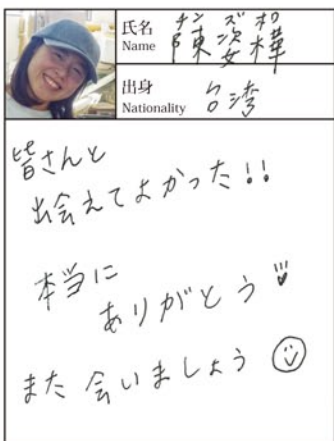 氏名
Name
チン ズ カ
陳 姿樺
出身
Nationality
台湾
皆さんと
出会えてよかった!!
本当に
ありがとう
また会いましょう